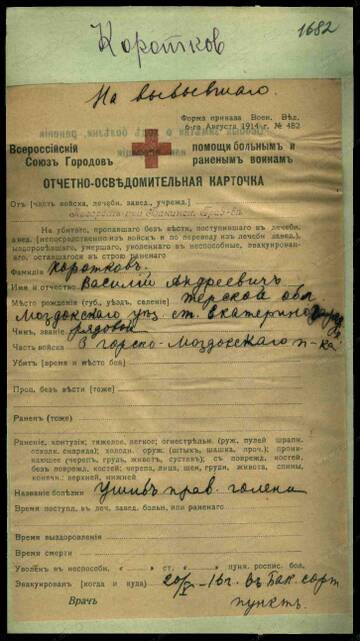 Коротков
1682
На выбывшаго.
Форма приказа Воен. Вѣд.
6-го Августа 1914 г. № 482
Всероссійскій
Союзъ Городовъ
помощи больнымъ и
раненымъ воинамъ
ОТЧЕТНО-ОСВѢДОМИТЕЛЬНАЯ КАРТОЧКА
Отъ [часть войска, лечебн. завед., учрежд.]
На убитаго, пропавшаго безъ вѣсти, поступившаго въ лечебн.
завед. [непосредственно изъ войскъ и по переводу изъ лечебн. завед.],
выздоровѣвшаго, умершаго, уволеннаго въ неспособные, эвакуирован-
наго, оставшагося въ строю раненаго
Фамилія Коротковъ
Имя и отчество Василій Андреевичъ
Мѣсто рожденія (губ., уѣздъ, селеніе) Терской обл.
Моздокскаго ст. Екатериноград
Чинъ, званіе рядовой
Часть войска 3 горско-Моздокскаго п-ка
Убитъ [время и мѣсто боя]
Проп. безъ вѣсти [тоже]
Раненъ (тоже)
Раненіе, контузія; тяжелое, легкое; огнестрѣльн. (руж. пулей шрапн.
осколк. снаряда); холодн. оруж. (штыкъ, шашка, проч.); прони-
кающее (черепъ, грудь, животъ, суставъ); съ поврежд. костей,
безъ поврежд. костей; черепа, лица, шеи, груди, живота, спины,
конечн.: верхней, нижней
Названіе болѣзни Ушибъ прав. голени
Время поступл. въ леч. завед. больн. или раненаго
Время выздоровленія
Время смерти
Уволенъ въ неспособн. « » ст. « » пунк. роспис. бол.
Эвакуированъ [когда и куда] 20/X-16 г. въ Бак. сорт
Врачъ пунктъ.